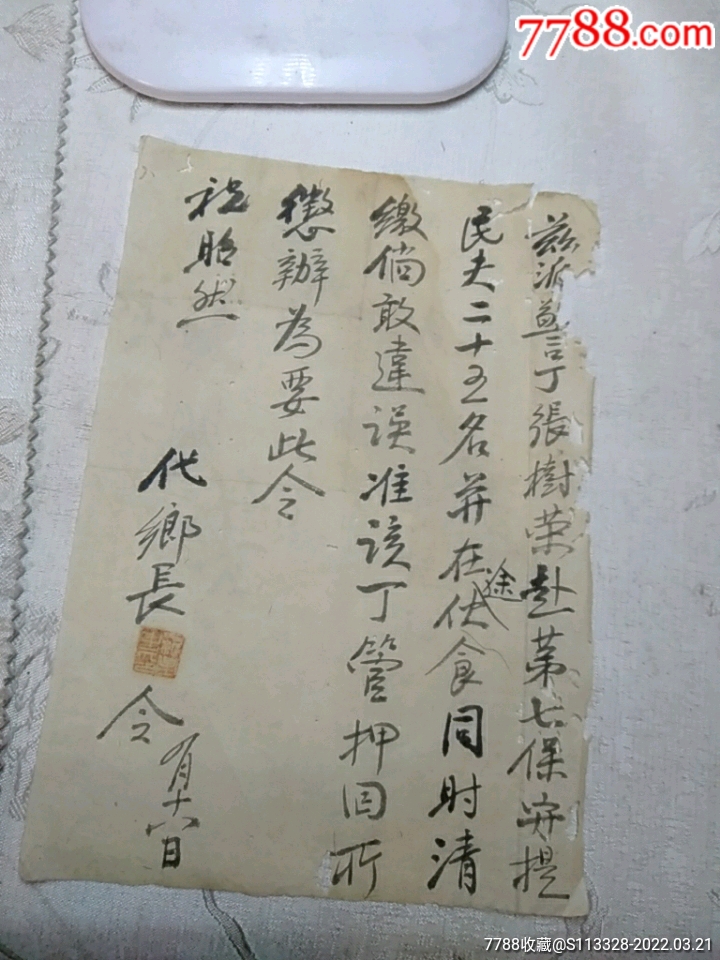 7788.com
兹派警丁張樹荣赴第七保安提
民夫二十五名并在途伙食同时清
繳倘敢違误准该丁管押回所
懲辦為要此令
祝昭然
代鄉長
令
月十八日
7788收藏@S113328-2022.03.21